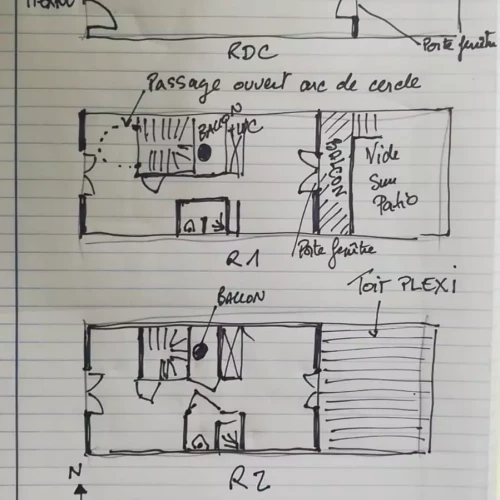 Porte fenêtre
RDC
Passage ouvert arc de cercle
BALLON
BALCON
Vide
Sur
Patio
Porte fenêtre
R1
Toit PLEXI
BALLON
R2
N